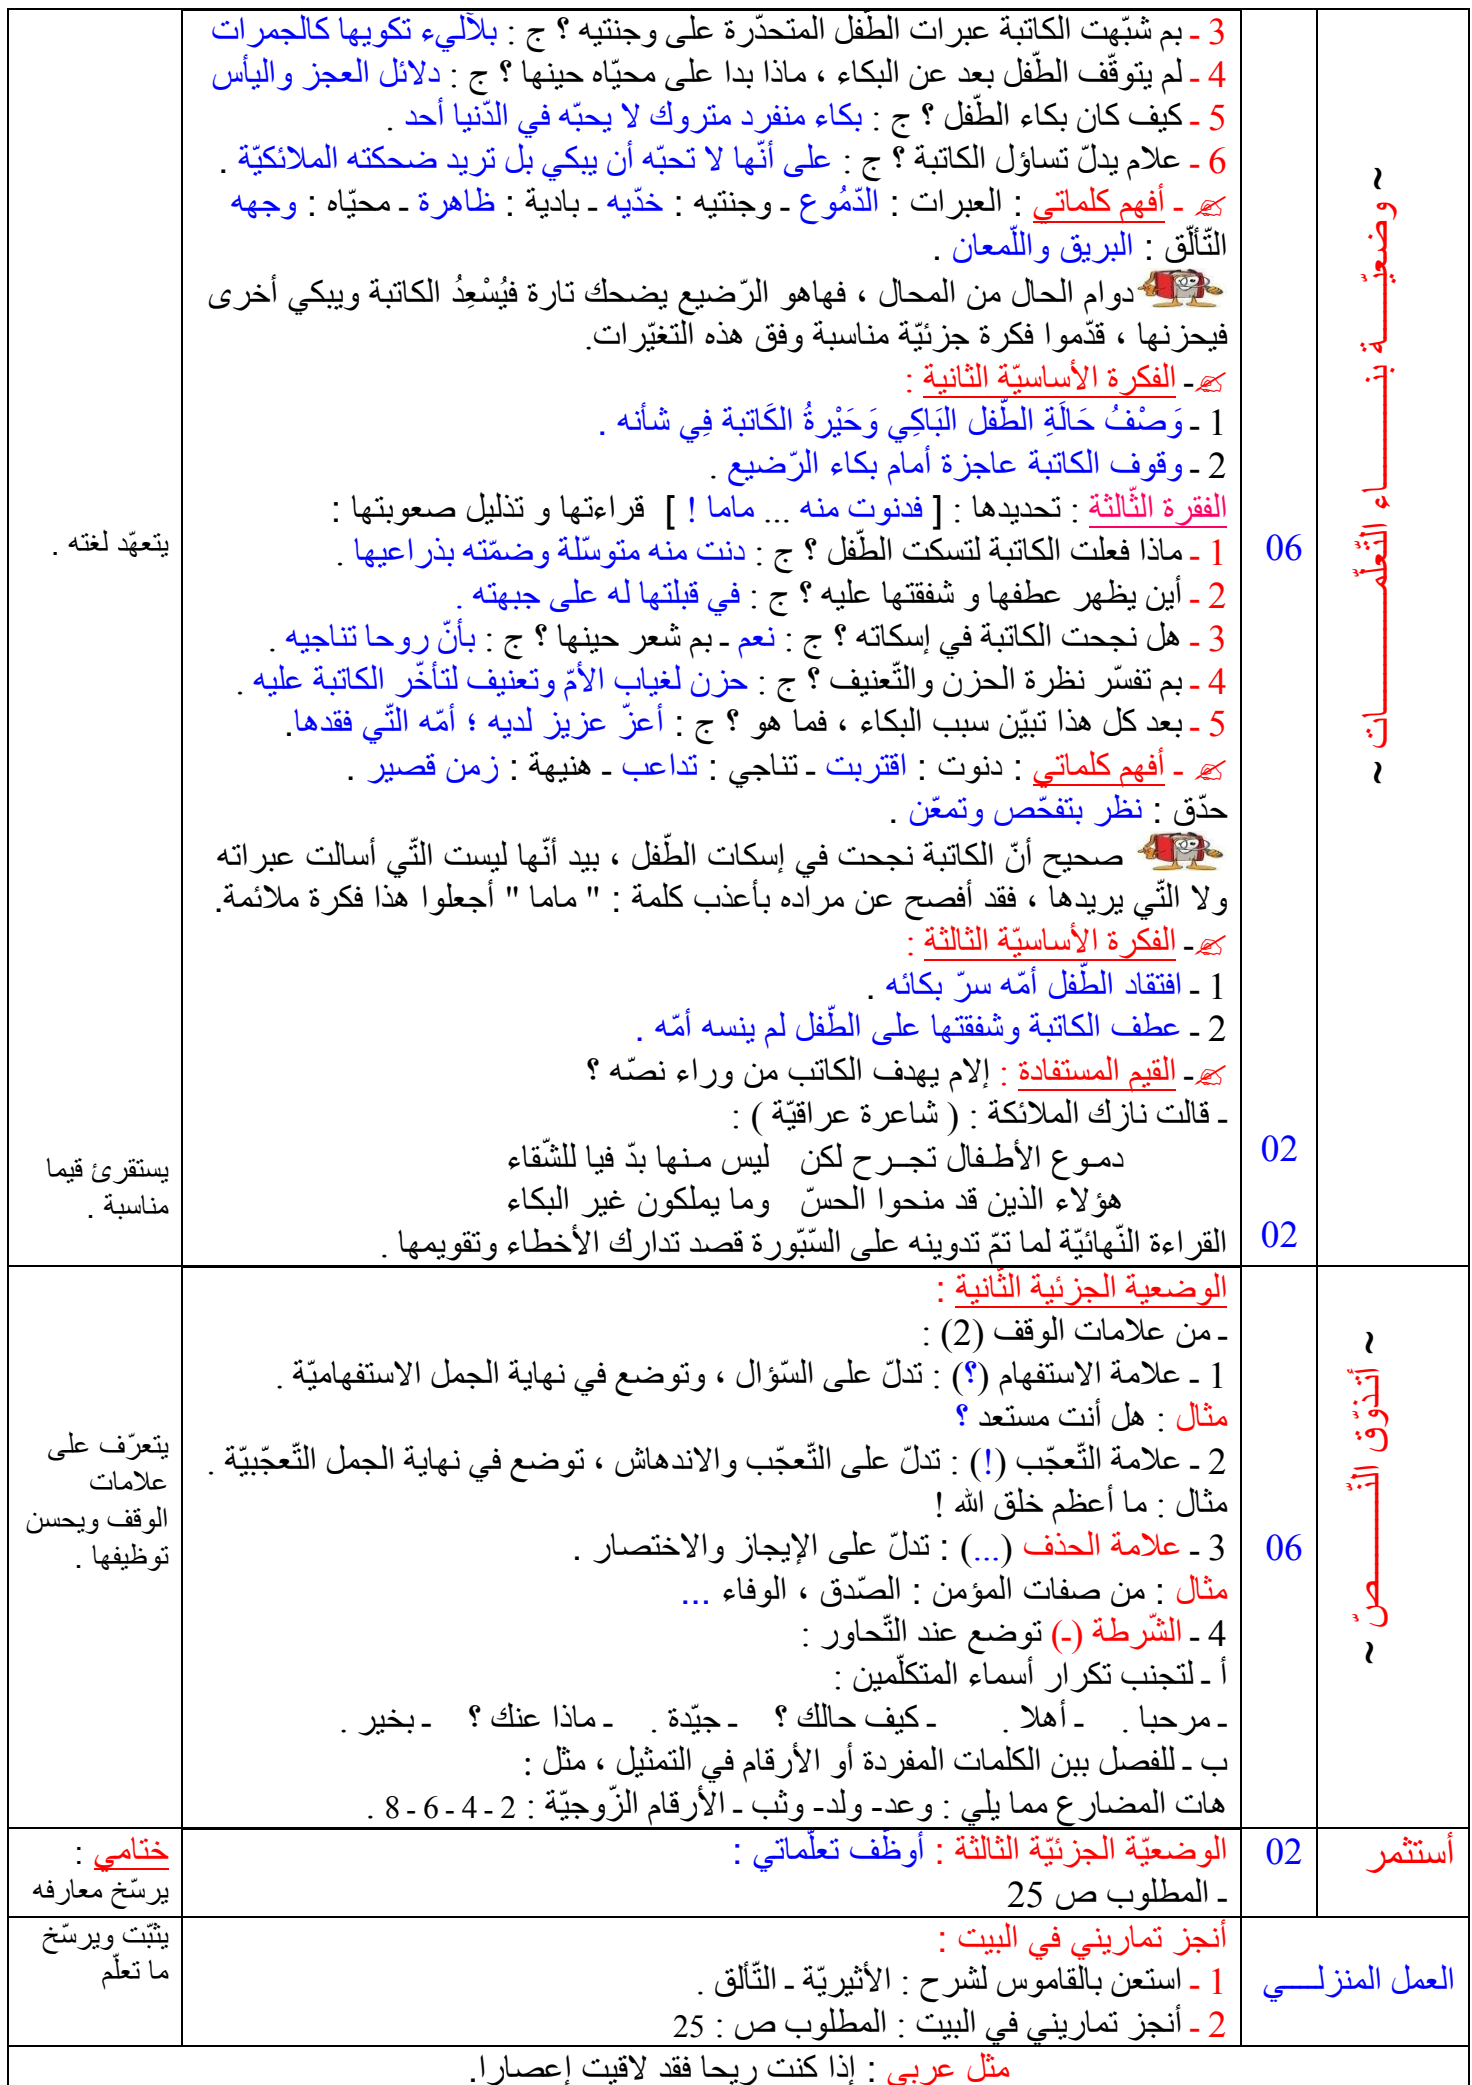 ~ وضعيّة بناء التّعلّمات ~
06
02
02
3 ـ بم شبّهت الكاتبة عبرات الطّفل المتحدّرة على وجنتيه ؟ ج : بلآليء تكويها كالجمرات
4 ـ لم يتوقّف الطّفل بعد عن البكاء ، ماذا بدا على محيّاه حينها ؟ ج : دلائل العجز واليأس
5 ـ كيف كان بكاء الطّفل ؟ ج : بكاء منفرد متروك لا يحبّه في الدّنيا أحد .
6 ـ علام يدلّ تساؤل الكاتبة ؟ ج : على أنّها لا تحبّه أن يبكي بل تريد ضحكته الملائكيّة .
ـ أفهم كلماتي : العبرات : الدّمُوع ـ وجنتيه : خدّيه ـ بادية : ظاهرة ـ محيّاه : وجهه
التّألّق : البريق واللّمعان .
دوام الحال من المحال ، فهاهو الرّضيع يضحك تارة فيُسْعِدُ الكاتبة ويبكي أخرى
فيحزنها ، قدّموا فكرة جزئيّة مناسبة وفق هذه التغيّرات.
ـ الفكرة الأساسيّة الثانية :
1 ـ وَصْفُ حَالَةِ الطّفل البَاكِي وَحَيْرةُ الكَاتبة فِي شأنه .
2 ـ وقوف الكاتبة عاجزة أمام بكاء الرّضيع .
الفقرة الثّالثة : تحديدها : [ فدنوت منه ... ماما ! ] قراءتها و تذليل صعوبتها :
1 ـ ماذا فعلت الكاتبة لتسكت الطّفل ؟ ج : دنت منه متوسّلة وضمّته بذراعيها .
2 ـ أين يظهر عطفها و شفقتها عليه ؟ ج : في قبلتها له على جبهته .
3 ـ هل نجحت الكاتبة في إسكاته ؟ ج : نعم ـ بم شعر حينها ؟ ج : بأنّ روحا تناجيه .
4 ـ بم تفسّر نظرة الحزن والتّعنيف ؟ ج : حزن لغياب الأمّ وتعنيف لتأخّر الكاتبة عليه .
5 ـ بعد كل هذا تبيّن سبب البكاء ، فما هو ؟ ج : أعزّ عزيز لديه ؛ أمّه التّي فقدها.
ـ أفهم كلماتي : دنوت : اقتربت ـ تناجي : تداعب ـ هنيهة : زمن قصير .
حدّق : نظر بتفحّص وتمعّن .
صحيح أنّ الكاتبة نجحت في إسكات الطّفل ، بيد أنّها ليست التّي أسالت عبراته
ولا التّي يريدها ، فقد أفصح عن مراده بأعذب كلمة : " ماما " أجعلوا هذا فكرة ملائمة.
ـ الفكرة الأساسيّة الثالثة :
1 ـ افتقاد الطّفل أمّه سرّ بكائه .
2 ـ عطف الكاتبة وشفقتها على الطّفل لم ينسه أمّه .
ـ القيم المستفادة : إلام يهدف الكاتب من وراء نصّه ؟
ـ قالت نازك الملائكة : ( شاعرة عراقيّة ) :
دمـوع الأطـفال تجــرح لكن ليس مـنها بدّ فيا للشّقاء
هؤلاء الذين قد منحوا الحسّ وما يملكون غير البكاء
القراءة النّهائيّة لما تمّ تدوينه على السّبّورة قصد تدارك الأخطاء وتقويمها .
يتعهّد لغته .
يستقرئ قيما
مناسبة .
~ أتذوّق النّصّ ~
06
الوضعية الجزئية الثّانية :
ـ من علامات الوقف (2) :
1 ـ علامة الاستفهام (؟) : تدلّ على السّؤال ، وتوضع في نهاية الجمل الاستفهاميّة .
مثال : هل أنت مستعد ؟
2 ـ علامة التّعجّب (!) : تدلّ على التّعجّب والاندهاش ، توضع في نهاية الجمل التّعجّبيّة .
مثال : ما أعظم خلق الله !
3 ـ علامة الحذف (...) : تدلّ على الإيجاز والاختصار .
مثال : من صفات المؤمن : الصّدق ، الوفاء ...
4 ـ الشّرطة (ـ) توضع عند التّحاور :
أ ـ لتجنب تكرار أسماء المتكلّمين :
ـ مرحبا . ـ أهلا . ـ كيف حالك ؟ ـ جيّدة . ـ ماذا عنك ؟ ـ بخير .
ب ـ للفصل ببن الكلمات المفردة أو الأرقام في التمثيل ، مثل :
هات المضارع مما يلي : وعد- ولد- وثب ـ الأرقام الزّوجيّة : 2 - 4 - 6 - 8 .
يتعرّف على
علامات
الوقف ويحسن
توظيفها .
أستثمر
02
الوضعيّة الجزئيّة الثالثة : أوظّف تعلّماتي :
ـ المطلوب ص 25
ختامي :
يرسّخ معارفه
العمل المنزلـــي
أنجز تماريني في البيت :
1 ـ استعن بالقاموس لشرح : الأثيريّة ـ التّألق .
2 ـ أنجز تماريني في البيت : المطلوب ص : 25
يثبّت ويرسّخ
ما تعلّم
مثل عربي : إذا كنت ريحا فقد لاقيت إعصارا.